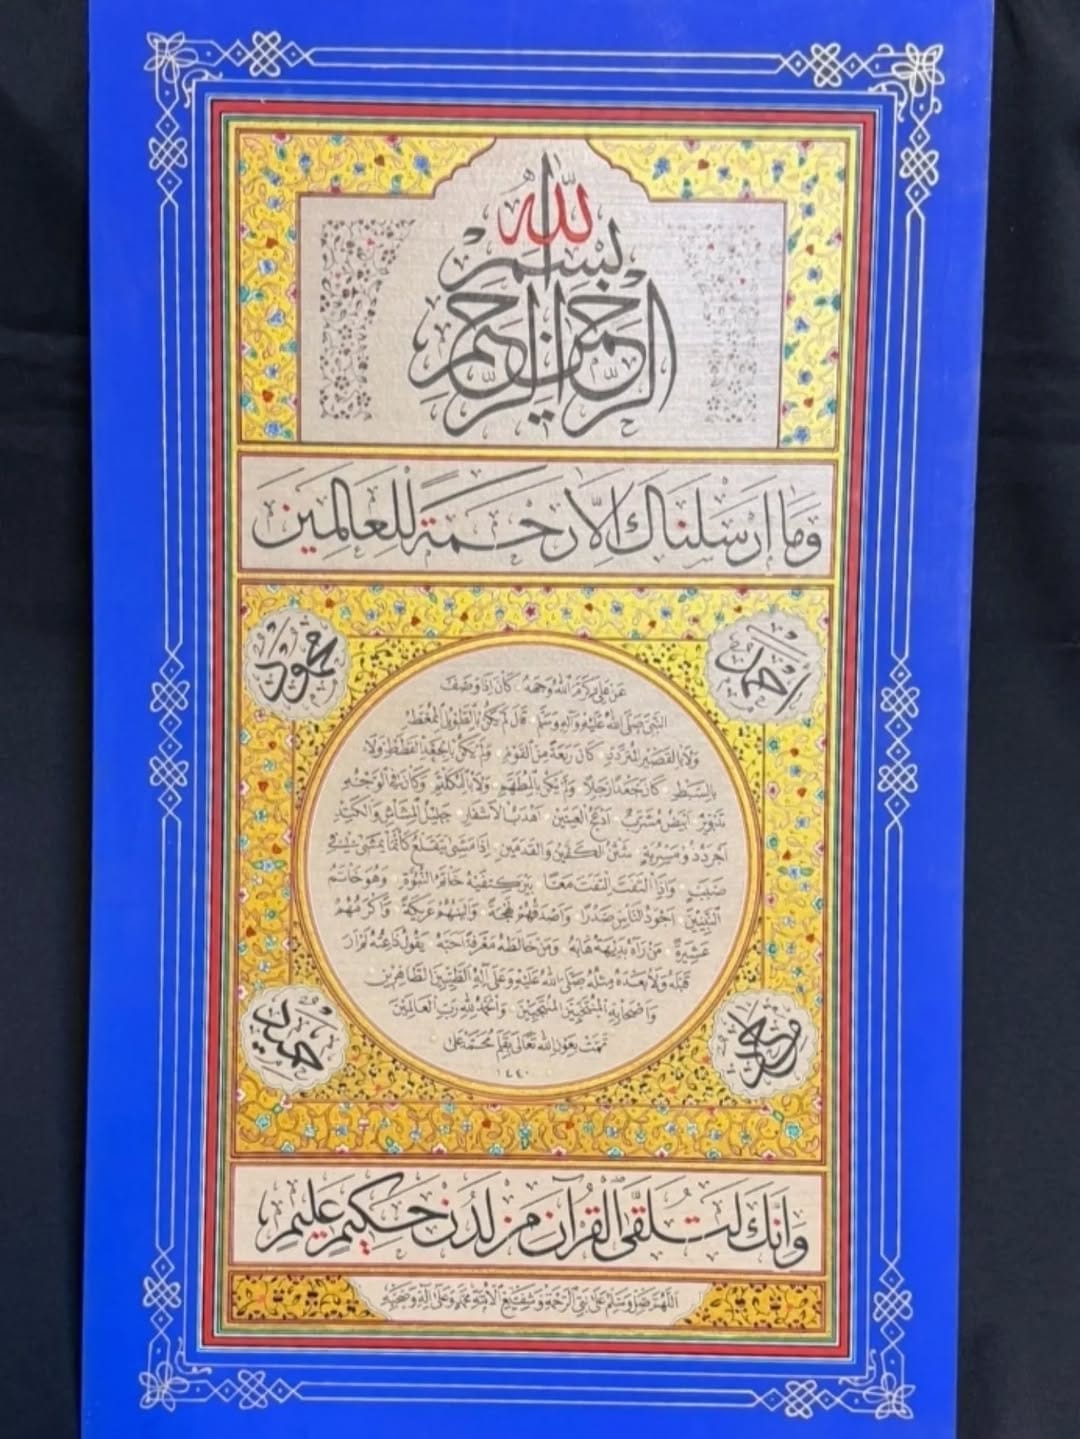 بسم الله الرحمن الرحيم
وَمَا اَرْسَلْنَاكَ اِلَّا رَحْمَةً لِلْعَالَمِينَ
احمد
محمود
عَنْ عَلِيٍّ كَرَّمَ اللهُ وَجْهَهُ كَانَ اِذَا وَصَفَ
النَّبِيَّ صَلَّى اللهُ عَلَيْهِ وَآلِهِ وَسَلَّمَ قَالَ لَمْ يَكُنْ بِالطَّوِيلِ الْمُمَغَّطِ
وَلَا بِالْقَصِيرِ الْمُتَرَدِّدِ كَانَ رَبْعَةً مِنَ الْقَوْمِ وَلَمْ يَكُنْ بِالْجَعْدِ الْقَطَطِ وَلَا
بِالسَّبْطِ كَانَ جَعْدًا رَجِلًا وَلَمْ يَكُنْ بِالْمُطَهَّمِ وَلَا بِالْمُكَلْثَمِ وَكَانَ فِي الْوَجْهِ
تَدْوِيرٌ اَبْيَضُ مُشْرَبٌ اَدْعَجُ الْعَيْنَيْنِ اَهْدَبُ الْاَشْفَارِ جَلِيلُ الْمُشَاشِ وَالْكَتَدِ
اَجْرَدُ ذُو مَسْرُبَةٍ شَثْنُ الْكَفَّيْنِ وَالْقَدَمَيْنِ اِذَا مَشَى يَتَقَلَّعُ كَاَنَّمَا يَمْشِي فِي
صَبَبٍ وَاِذَا الْتَفَتَ الْتَفَتَ مَعًا بَيْنَ كَتِفَيْهِ خَاتَمُ النُّبُوَّةِ وَهُوَ خَاتَمُ
النَّبِيِّينَ اَجْوَدُ النَّاسِ صَدْرًا وَاَصْدَقُهُمْ لَهْجَةً وَاَلْيَنُهُمْ عَرِيكَةً وَاَكْرَمُهُمْ
عَشِيرَةً مَنْ رَآهُ بَدِيهَةً هَابَهُ وَمَنْ خَالَطَهُ مَعْرِفَةً اَحَبَّهُ يَقُولُ نَاعِتُهُ لَمْ اَرَ
قَبْلَهُ وَلَا بَعْدَهُ مِثْلَهُ صَلَّى اللهُ عَلَيْهِ وَعَلَى آلِهِ الطَّيِّبِينَ الطَّاهِرِينَ
وَاَصْحَابِهِ الْمُنْتَخَبِينَ الْمُنْتَجَبِينَ وَالْحَمْدُ لِلهِ رَبِّ الْعَالَمِينَ
تَمَّتْ بِعَوْنِ اللهِ تَعَالَى بِقَلَمِ مُحَمَّد عَلَى
١٤٤٠
حميد
وَاِنَّكَ لَتُلَقَّى الْقُرْآنَ مِنْ لَدُنْ حَكِيمٍ عَلِيمٍ
اَللّٰهُمَّ صَلِّ وَسَلِّمْ عَلَى نَبِيِّ الرَّحْمَةِ وَشَفِيعِ الْاُمَّةِ مُحَمَّدٍ وَعَلَى آلِهِ وَصَحْبِهِ